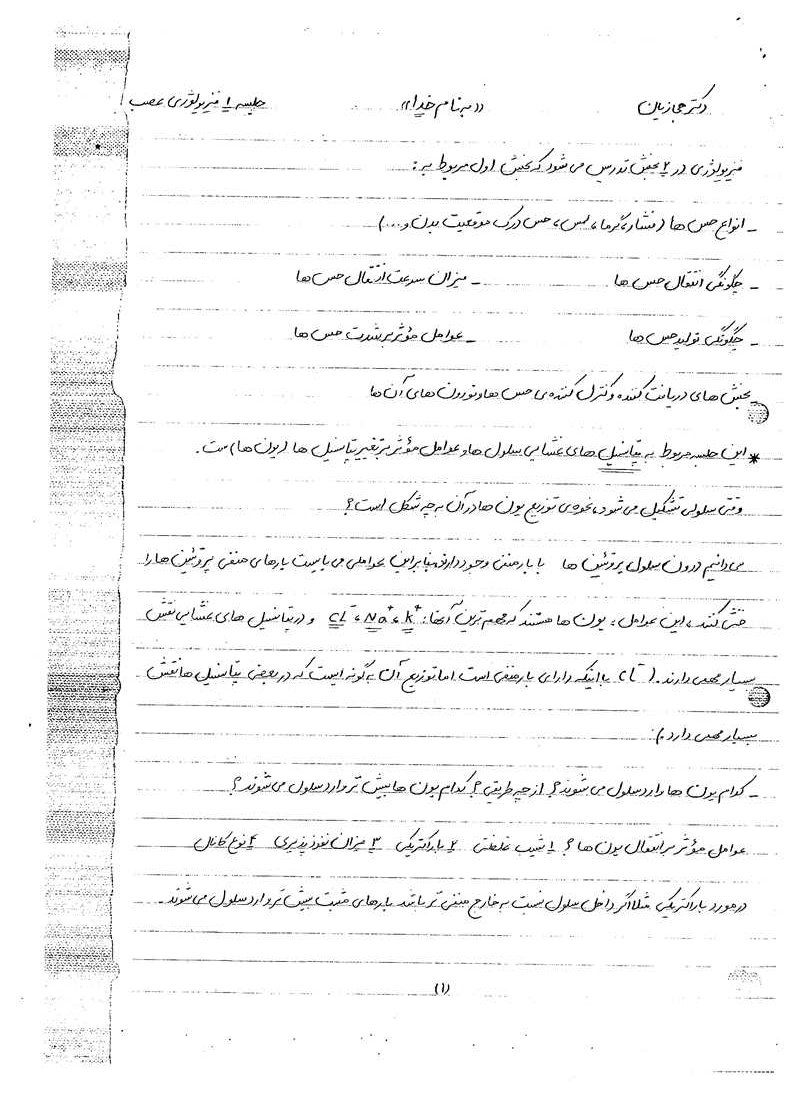 دکتر حجازیان «به نام خدا» جلسه ۱ فیزیولوژی عصب
فیزیولوژی در ۲ بخش تدریس می شود که بخش اول مربوط به :
- انواع حس ها (فشار، گرما، لمس، حس درک موقعیت بدن و ...)
- چگونگی انتقال حس ها - میزان سرعت انتقال حس ها
- چگونگی تولید حس ها - عوامل مؤثر بر شدت حس ها
- بخش های دریافت کننده و کنترل کننده ی حس ها و نورون های آن ها
* این جلسه مربوط به پتانسیل های غشایی سلول ها و عوامل مؤثر بر تغییر پتانسیل ها (یون ها) ست.
وقتی سلولی تشکیل می شود، نحوه ی توزیع یون ها در آن به چه شکل است؟
می دانیم درون سلول پروتئین ها با بار منفی وجود دارند بنابراین عواملی می بایست بارهای منفی پروتئین ها را
خنثی کنند، این عوامل، یون ها هستند که مهم ترین آنها: K⁺، Na⁺، CL⁻ و در پتانسیل های غشایی نقش
بسیار مهمی دارند. (CL⁻ با اینکه دارای بار منفی است اما توزیع آن به گونه ایست که در بعضی پتانسیل ها نقش
بسیار مهمی دارد.)
- کدام یون ها وارد سلول می شوند؟ از چه طریقی؟ کدام یون ها بیش تر وارد سلول می شوند؟
عوامل مؤثر بر انتقال یون ها؟ ۱ شیب غلظتی ۲ بار الکتریکی ۳ میزان نفوذپذیری ۴ نوع کانال
در مورد بار الکتریکی مثلا اگر داخل سلول نسبت به خارج منفی تر باشد بارهای مثبت بیش تر وارد سلول می شوند.
(۱)